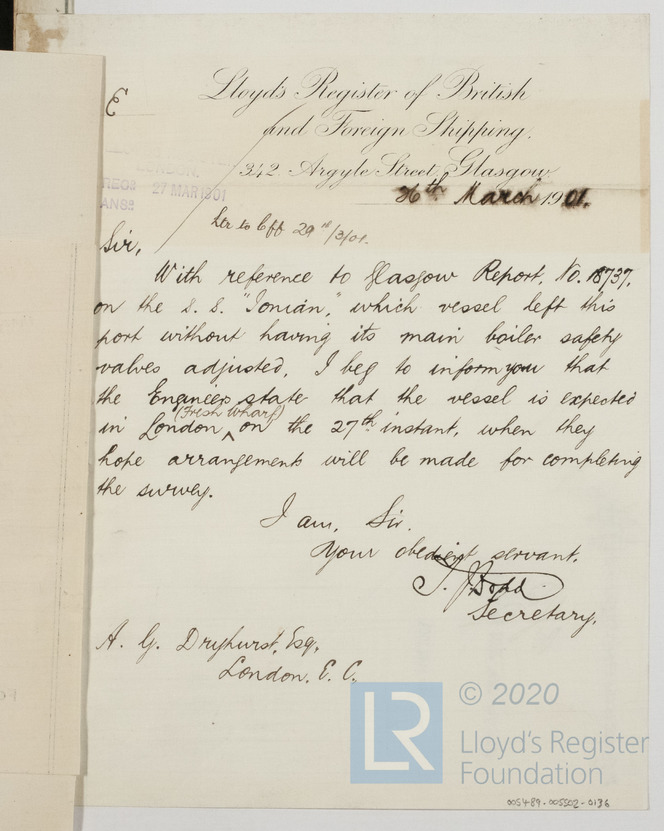 E
Lloyd's Register of British
and Foreign Shipping.
342 Argyle Street, Glasgow
LONDON.
27 MAR 1901
ANSD
26th March 1901.
29th/3/01.
Sir,
With reference to Glasgow Report, No. 18737,
on the S. S. "Ionian", which vessel left this
port without having its main boiler safety
valves adjusted, I beg to inform you that
the Engineers state that the vessel is expected
(Fresh Wharf)
in London, on the 27th instant, when they
hope arrangements will be made for completing
the survey.
I am, Sir.
Your obedient servant.
Secretary.
A. G. Dryhurst, Esq.
London. E. C.
LR
© 2020
Lloyd's Register
Foundation
005489-005502-0136